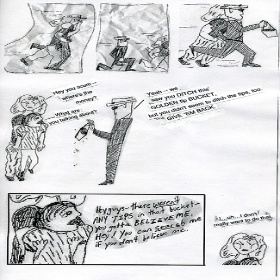 Hey you scum —
where's the
money?
What are
you talking about?
Yeah — we
saw you DITCH this
GOLDEN tip BUCKET,
but you didn't seem to ditch the tips, too.
GIVE 'EM BACK
Hey guys - there weren't
ANY TIPS in that bucket-
you gotta BELIEVE ME.
HEY! You can SEARCH me
if you don't believe me.
I don't
really want to do that.